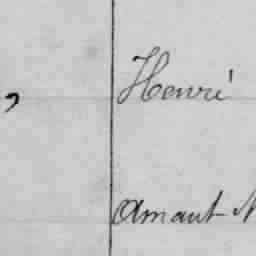 ,
Henri
Amant